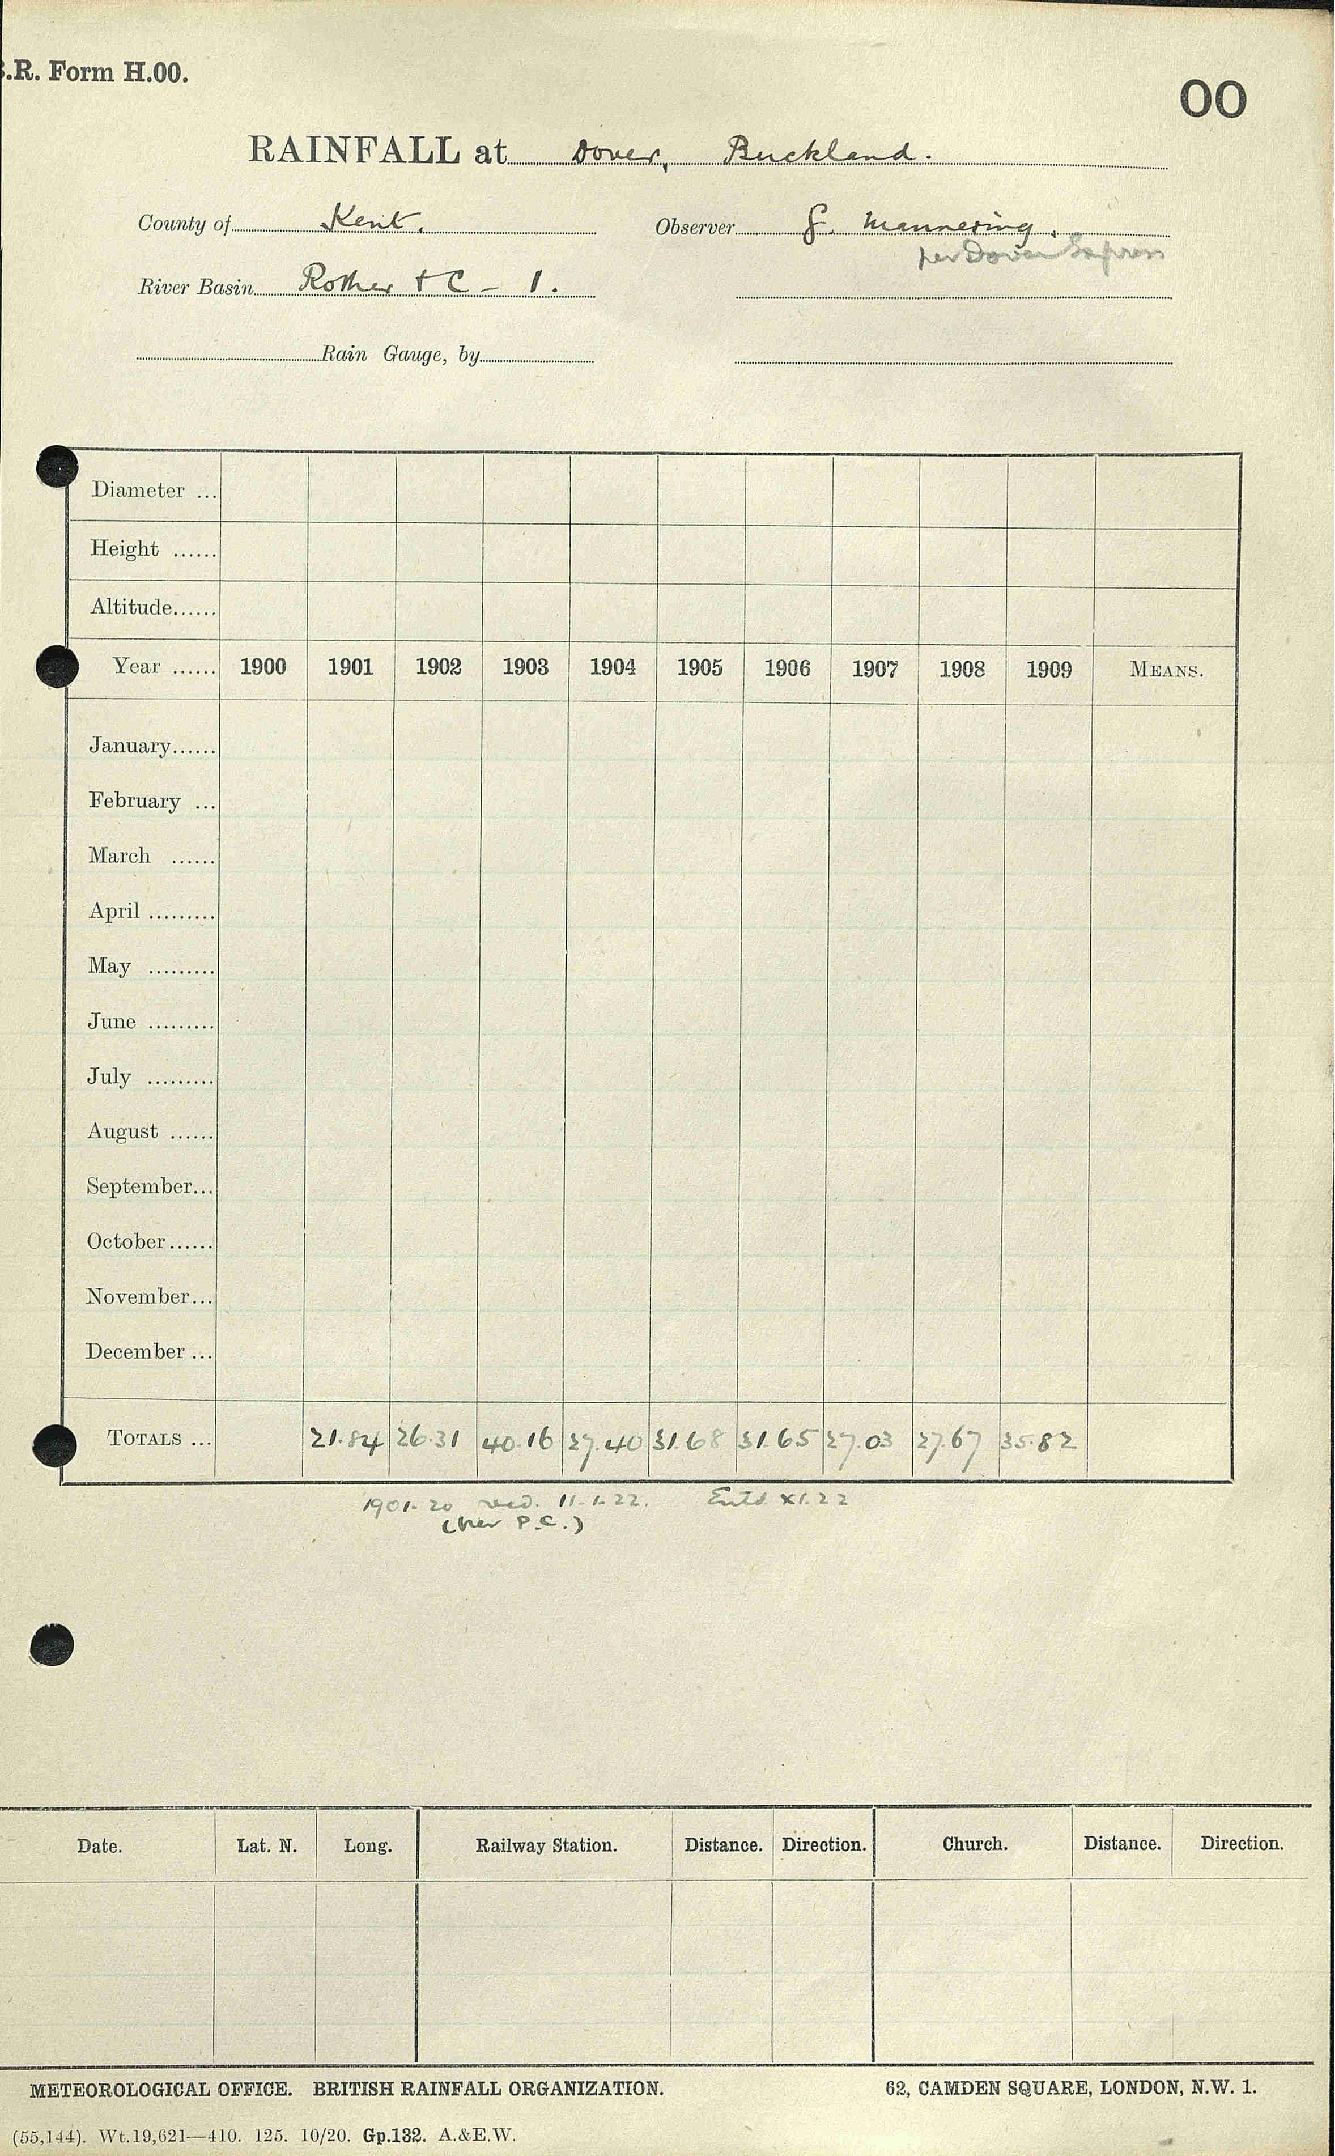 .R. Form H.00.
00
RAINFALL at Dover, Buckland.
County of Kent. Observer G. Mannering.
per Dover Express
River Basin Rother + C - 1.
Rain Gauge, by
Diameter ...
Height ......
Altitude......
Year ...... 1900 1901 1902 1903 1904 1905 1906 1907 1908 1909 MEANS.
January......
February ...
March ......
April .........
May .........
June .........
July .........
August ......
September...
October......
November...
December ...
TOTALS ... 21.84 26.31 40.16 27.40 31.68 31.65 27.03 27.67 35.82
1901-20 recd. 11.1.22. Entd XI.22
(per P.C.)
Date. Lat. N. Long. Railway Station. Distance. Direction. Church. Distance. Direction.
METEOROLOGICAL OFFICE. BRITISH RAINFALL ORGANIZATION. 62, CAMDEN SQUARE, LONDON, N.W. 1.
(55,144). Wt.19,621—410. 125. 10/20. Gp.132. A.&E.W.